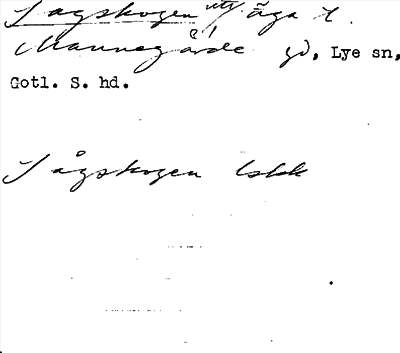 Sågskogen utt. äga t.
Mannegårde gd, Lye sn,
Gotl. S. hd.
Sågskogen lskk